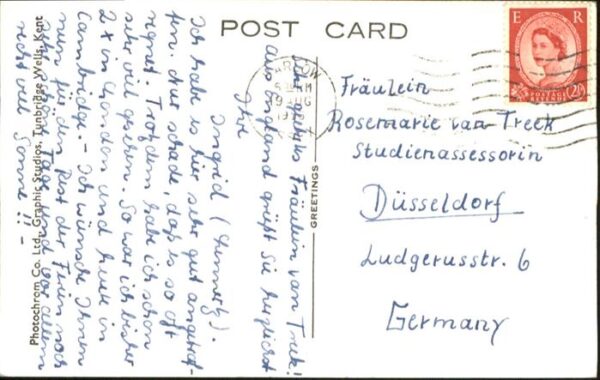 POST CARD
E R
POSTAGE
REVENUE
2½
HARROW
AUG
Fräulein
Rosemarie van Treek
Studienassessorin
Düsseldorf
Ludgerusstr. 6
Germany
GREETINGS
Fräulein van Treek!
Aus England grüßt Sie herzlichst
Ihre
Ingrid
Ich habe es hier sehr gut angetrof-
fen. Nur schade, daß es so oft
regnet. Trotzdem habe ich schon
sehr viel gesehen. So war ich bisher
2 x in London und heute in
Cambridge. - Ich wünsche Ihnen
nun für den Rest der Ferien noch
schöne Tage und vor allem
recht viel Sonne!! -
Photochrom Co. Ltd., Graphic Studios, Tunbridge Wells, Kent